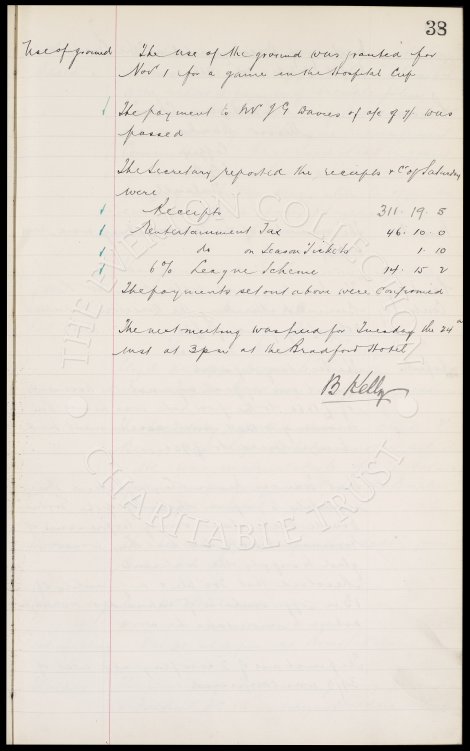 38
Use of ground The use of the ground was granted for
Nov 1 for a game in the Hospital Cup
The payment to Mr J G Davies of a/c of 7/- was
passed
The Secretary reported the receipts & c of Saturday
were
Receipts 311. 19. 5
Entertainment Tax 46. 10. 0
do on Season Tickets 1. 10
6% League Scheme 14. 15 2
The payments set out above were confirmed
The next meeting was fixed for Tuesday the 24th
inst at 3pm at the Bradford Hotel
B Kelly
THE EVERTON COLLECTION
CHARITABLE TRUST